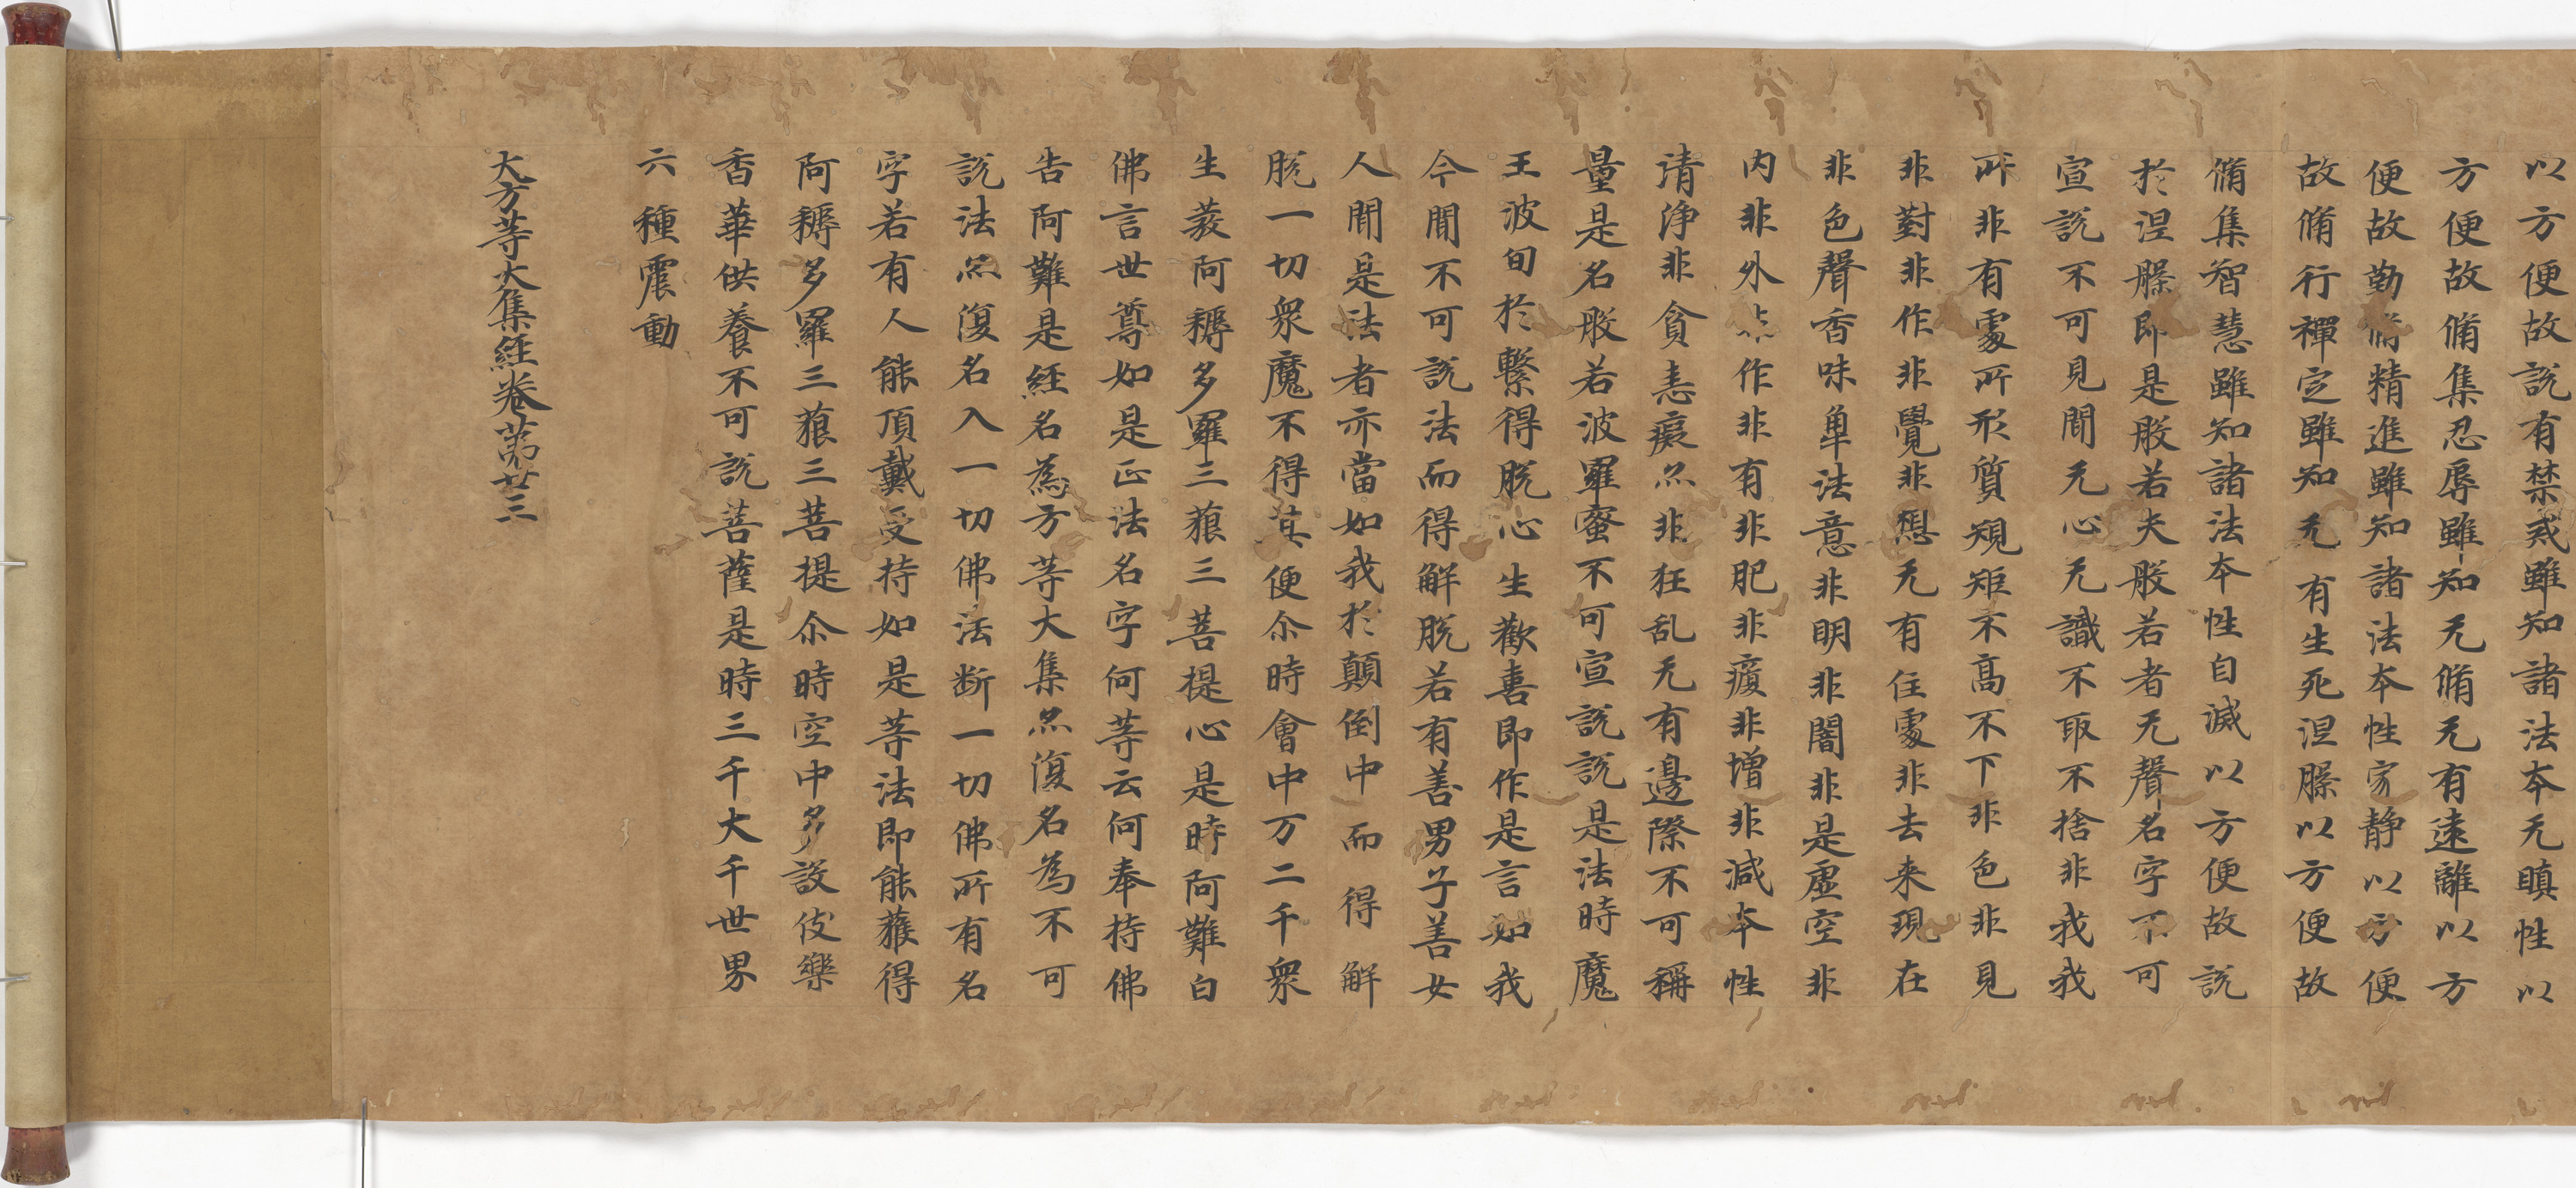 以方便故說有禁戒雖知諸法本无瞋性以
方便故脩集忍辱雖知无脩无有遠離以方
便故勤脩精進雖知諸法本性寂静以方便
故脩行禪定雖知无有生死涅槃以方便故
脩集智慧雖知諸法本性自滅以方便故說
於涅槃即是般若夫般若者无聲名字不可
宣說不可見聞无心无識不取不捨非我我
所非有處所形質規矩不高不下非色非見
非對非作非覺非想无有住處非去来現在
非色聲香味触法意非明非闇非是虛空非
内非外非作非有非肥非瘦非增非減本性
清淨非貪恚癡亦非狂乱无有邊際不可稱
量是名般若波羅蜜不可宣說說是法時魔
王波旬於繫得脫心生歡喜即作是言如我
今聞不可說法而得解脫若有善男子善女
人聞是法者亦當如我於顛倒中而得解
脫一切衆魔不得其便尒時會中万二千衆
生發阿耨多羅三藐三菩提心是時阿難白
佛言世尊如是正法名字何等云何奉持佛
告阿難是經名為方等大集亦復名為不可
說法亦復名入一切佛法断一切佛所有名
字若有人能頂戴受持如是等法即能獲得
阿耨多羅三藐三菩提尒時空中多設伎樂
香華供養不可說菩薩是時三千大千世界
六種震動
大方等大集經卷第廿三